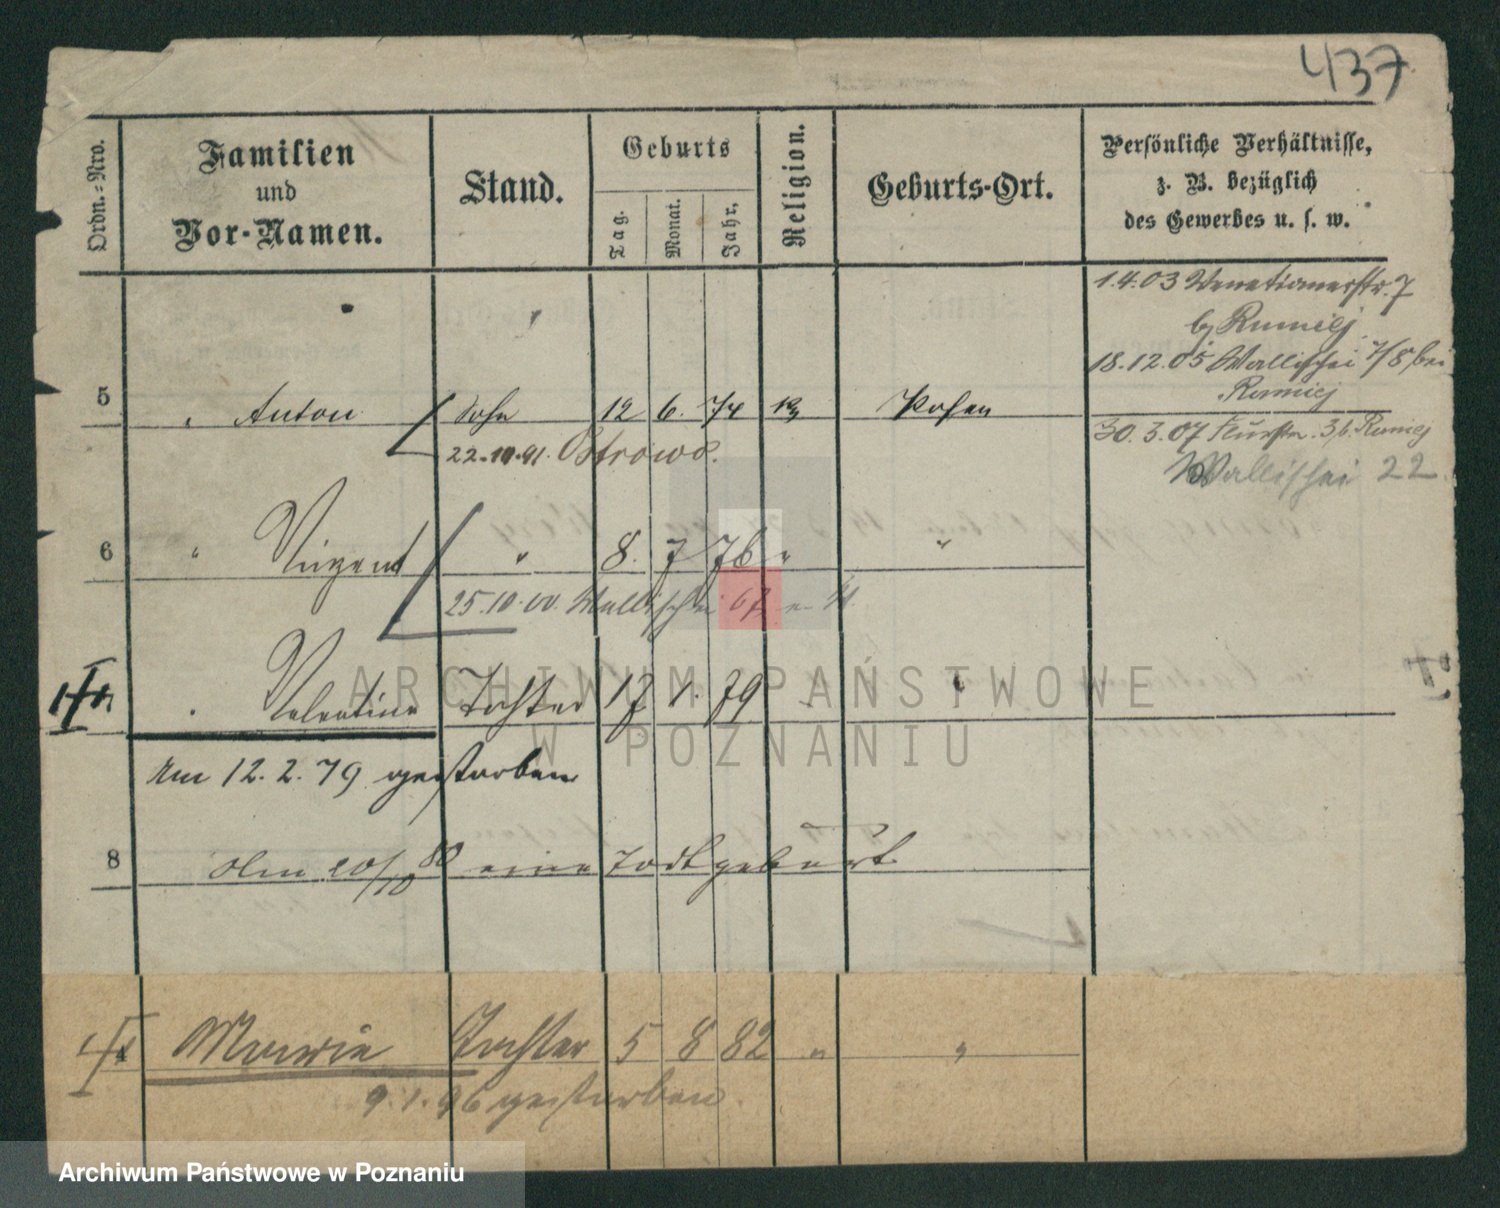 437
Ordn.-Nro.
Familien
und
Vor-Namen.
Stand.
Geburts
Tag.
Monat.
Jahr.
Religion.
Geburts-Ort.
Persönliche Verhältnisse,
z. B. bezüglich
des Gewerbes u. s. w.
1.4.03 Venetianerstr. 7
18.12.05 Wallischei 7/8 bei
5 " Anton Sohn 12 6. 74 Posen
30.3.07
22.10.91. Ostrowo.
Wallischei 22
6 " Vinzent " 8. 7 76 " "
25.10.00. Wallischei
Valentine Tochter 17 1. 79
Am 12. 2. 79 gestorben
8 Am 20/10 80 eine Todtgeburt
Marie Tochter 5 8 82 " "
9.1.96 gestorben.
ARCHIWUM PAŃSTWOWE
W POZNANIU
Archiwum Państwowe w Poznaniu